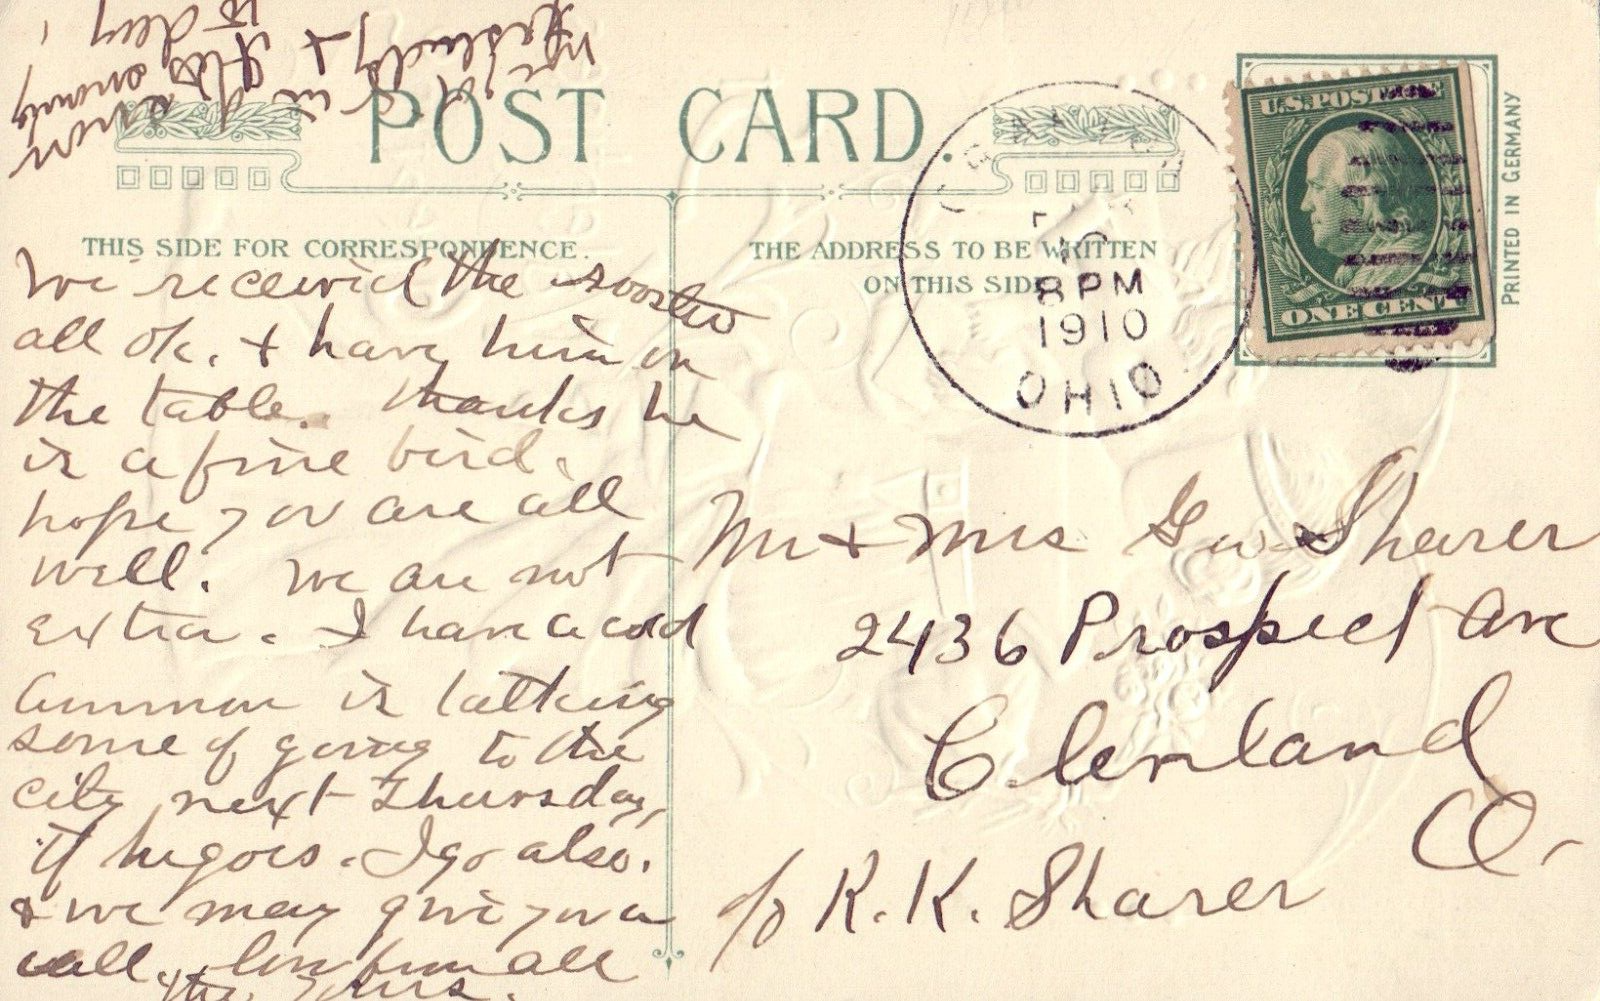 POST CARD.
THIS SIDE FOR CORRESPONDENCE.
THE ADDRESS TO BE WRITTEN
ON THIS SIDE
PRINTED IN GERMANY
U.S. POSTAGE
ONE CENT
8 PM
1910
OHIO
We received the rooster
all ok. + have him on
the table. thanks he
is a fine bird.
hope you are all
well. We are not
extra. I have a cold
Ammon is talking
some of going to the
city next Thursday,
if he goes. I go also.
+ we may give you a
call. love from all
Mr + Mrs G W Sharer
2436 Prospect Ave
Cleveland
O-
c/o R. K. Sharer